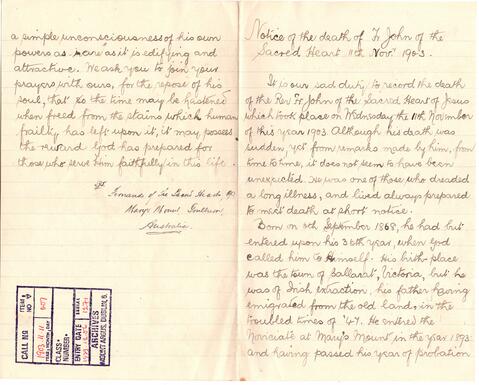 a simple unconsciousness of his own
powers as rare as it is edifying and
attractive. We ask you to join your
prayers with ours, for the repose of his
soul, that so the time may be hastened
when freed from the stains, which human
frailty has left upon it, it may possess
the reward God has prepared for
those who serve him faithfully in this life.
of the Sacred Heart,
Mary's Mount Goulburn
Australia.
CALL NO
ITEM NO
1903.11.11
YEAR/MONTH/DAY
CLASS.
NUMBER.
ENTRY DATE
ARCHIVES
MOUNT ARGUS, DUBLIN, 6.
Notice of the death of Fr John of the
Sacred Heart 11th Novr 1903.
It is our sad duty to record the death
of the Rev Fr John of the Sacred Heart of Jesus
which took place on Wednesday the 11th November
of this year 1903. Although his death was
sudden, yet from remarks made by him, from
time to time, it does not seem to have been
unexpected. He was one of those who dreaded
a long illness, and lived always prepared
to meet death at short notice.
Born on September 1868, he had but
entered upon his 36th year, when God
called him to Himself. His birth-place
was the town of Ballarat, Victoria, but he
was of Irish extraction, his father having
emigrated from the old land, in the
troubled times of '47. He entered the
Novciate at Mary's Mount in the year 1893
and having passed his year of probation